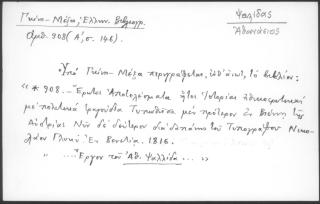 Γκίνη - Μέξα, Ἑλλην. Βιβλιογρ.
Ἀριθ. 908 (Α', σ. 146).
Ψαλίδας
Ἀθανάσιος
Ὑπὸ Γκίνη - Μέξα περιγράφεται, τὸ βιβλίον:
« * 908. - Ἔρωτος Ἀποτελέσματα ἤτοι Ἱστορίαι ἠθικοερωτικαὶ
μὲ πολιτικὰ τραγούδια Τυπωθεῖσα μὲν πρότερον ἐν Βιέννῃ τῆς
Αὐστρίας Νῦν δὲ δεύτερον διὰ δαπάνης τοῦ Τυπογράφου Νικο-
λάου Γλυκῦ Ἐν Βενετίᾳ. 1816.
» ... Ἔργον τοῦ Ἀθ. Ψαλλίδα ... »